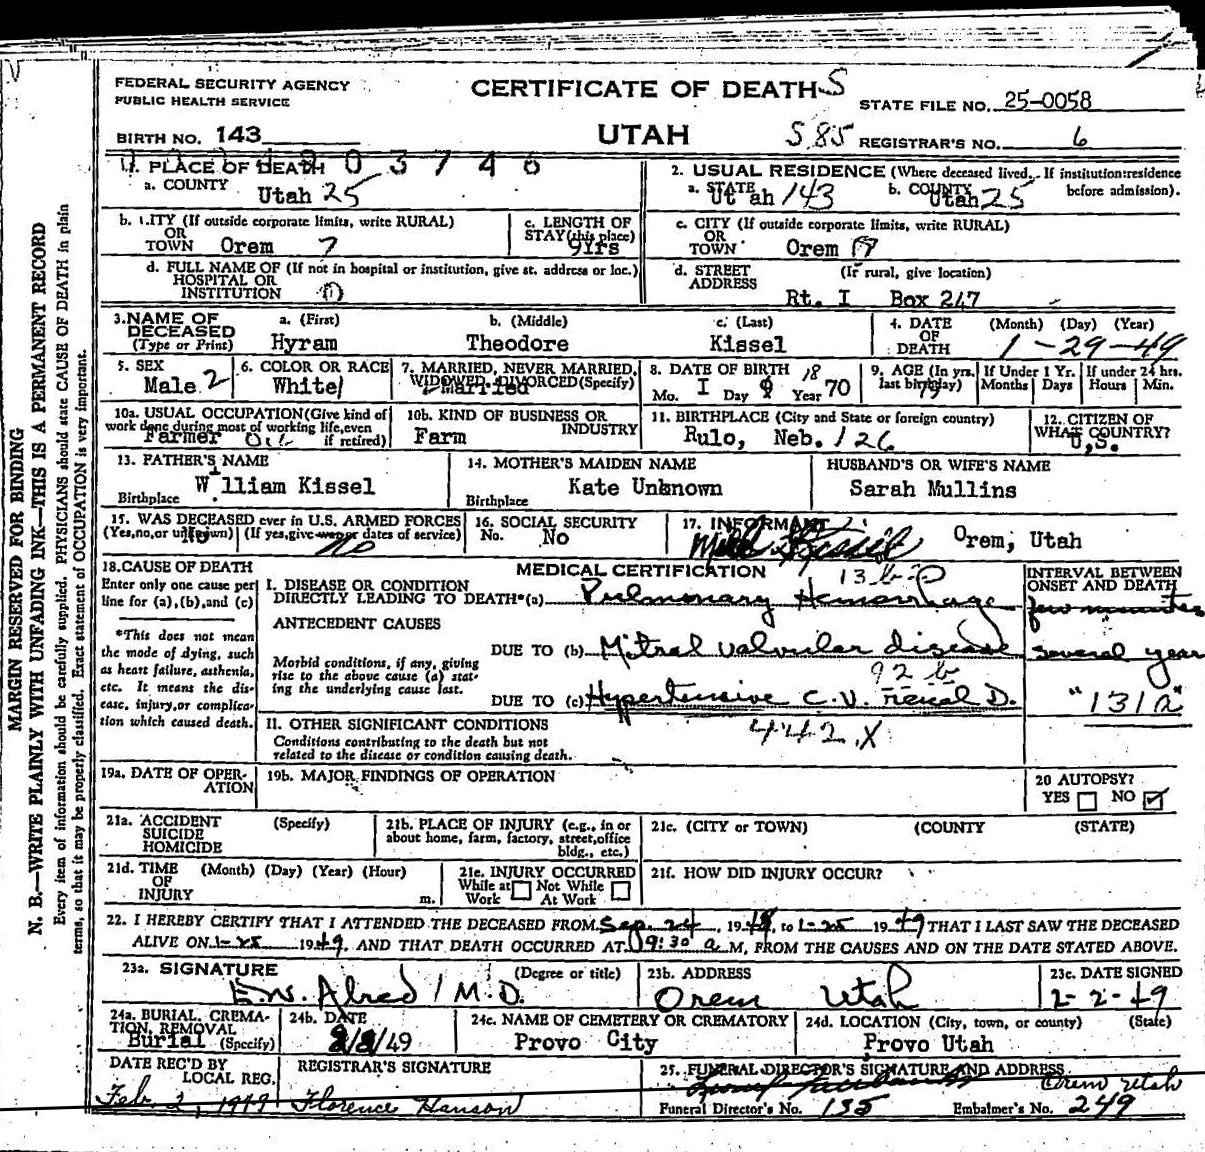 FEDERAL SECURITY AGENCY
PUBLIC HEALTH SERVICE
CERTIFICATE OF DEATH S
STATE FILE NO. 25-0058
BIRTH NO. 143
UTAH
585 REGISTRAR'S NO. 6
1. PLACE OF DEATH 03746
a. COUNTY Utah 25
2. USUAL RESIDENCE (Where deceased lived. If institution: residence before admission).
a. STATE Utah 143 b. COUNTY Utah 25
b. CITY (If outside corporate limits, write RURAL) OR TOWN Orem 7
c. LENGTH OF STAY (this place) 9Yrs
c. CITY (If outside corporate limits, write RURAL) OR TOWN Orem
d. FULL NAME OF (If not in hospital or institution, give st. address or loc.) HOSPITAL OR INSTITUTION
d. STREET ADDRESS (If rural, give location) Rt. I Box 247
3. NAME OF DECEASED (Type or Print)
a. (First) Hyram
b. (Middle) Theodore
c. (Last) Kissel
4. DATE OF DEATH (Month) (Day) (Year) 1-29-49
5. SEX Male 2
6. COLOR OR RACE White
7. MARRIED, NEVER MARRIED, WIDOWED, DIVORCED (Specify) Married
8. DATE OF BIRTH 18 Mo. I Day 9 Year 70
9. AGE (In yrs. last birthday) 79
If Under 1 Yr. Months Days
If under 24 hrs. Hours Min.
10a. USUAL OCCUPATION (Give kind of work done during most of working life, even if retired) Farmer
10b. KIND OF BUSINESS OR INDUSTRY Farm
11. BIRTHPLACE (City and State or foreign country) Rulo, Neb. 126
12. CITIZEN OF WHAT COUNTRY? U.S.
13. FATHER'S NAME William Kissel
Birthplace
14. MOTHER'S MAIDEN NAME Kate Unknown
Birthplace
HUSBAND'S OR WIFE'S NAME Sarah Mullins
15. WAS DECEASED ever in U.S. ARMED FORCES (Yes, no, or unknown) No (If yes, give war or dates of service) no
16. SOCIAL SECURITY No. No
17. INFORMANT Kissel Orem, Utah
18. CAUSE OF DEATH
Enter only one cause per line for (a), (b), and (c)
*This does not mean the mode of dying, such as heart failure, asthenia, etc. It means the disease, injury, or complication which caused death.
MEDICAL CERTIFICATION
INTERVAL BETWEEN ONSET AND DEATH
I. DISEASE OR CONDITION DIRECTLY LEADING TO DEATH* (a) Pulmonary Hemorrhage few minutes
ANTECEDENT CAUSES
Morbid conditions, if any, giving rise to the above cause (a) stating the underlying cause last.
DUE TO (b) Mitral valvular disease several year
92b
DUE TO (c) Hypertensive C.V. Renal D. "131a"
442.X
II. OTHER SIGNIFICANT CONDITIONS
Conditions contributing to the death but not related to the disease or condition causing death.
19a. DATE OF OPERATION
19b. MAJOR FINDINGS OF OPERATION
20 AUTOPSY? YES NO ✓
21a. ACCIDENT SUICIDE HOMICIDE (Specify)
21b. PLACE OF INJURY (e.g., in or about home, farm, factory, street, office bldg., etc.)
21c. (CITY or TOWN) (COUNTY) (STATE)
21d. TIME OF INJURY (Month) (Day) (Year) (Hour) m.
21e. INJURY OCCURRED While at Work Not While At Work
21f. HOW DID INJURY OCCUR?
22. I HEREBY CERTIFY THAT I ATTENDED THE DECEASED FROM Sep. 24, 1948, to 1-25 1949 THAT I LAST SAW THE DECEASED
ALIVE ON 1-25 1949, AND THAT DEATH OCCURRED AT 9:30 a M, FROM THE CAUSES AND ON THE DATE STATED ABOVE.
23a. SIGNATURE (Degree or title) E.W. Alred M.D.
23b. ADDRESS Orem Utah
23c. DATE SIGNED 2-2-49
24a. BURIAL, CREMATION, REMOVAL (Specify) Burial
24b. DATE 2/2/49
24c. NAME OF CEMETERY OR CREMATORY Provo City
24d. LOCATION (City, town, or county) (State) Provo Utah
DATE REC'D BY LOCAL REG. Feb. 2, 1949
REGISTRAR'S SIGNATURE Florence Hanson
25. FUNERAL DIRECTOR'S SIGNATURE AND ADDRESS Orem Utah
Funeral Director's No. 135 Embalmer's No. 249
MARGIN RESERVED FOR BINDING
N. B.—WRITE PLAINLY WITH UNFADING INK—THIS IS A PERMANENT RECORD
Every item of information should be carefully supplied. PHYSICIANS should state CAUSE OF DEATH in plain
terms, so that it may be properly classified. Exact statement of OCCUPATION is very important.